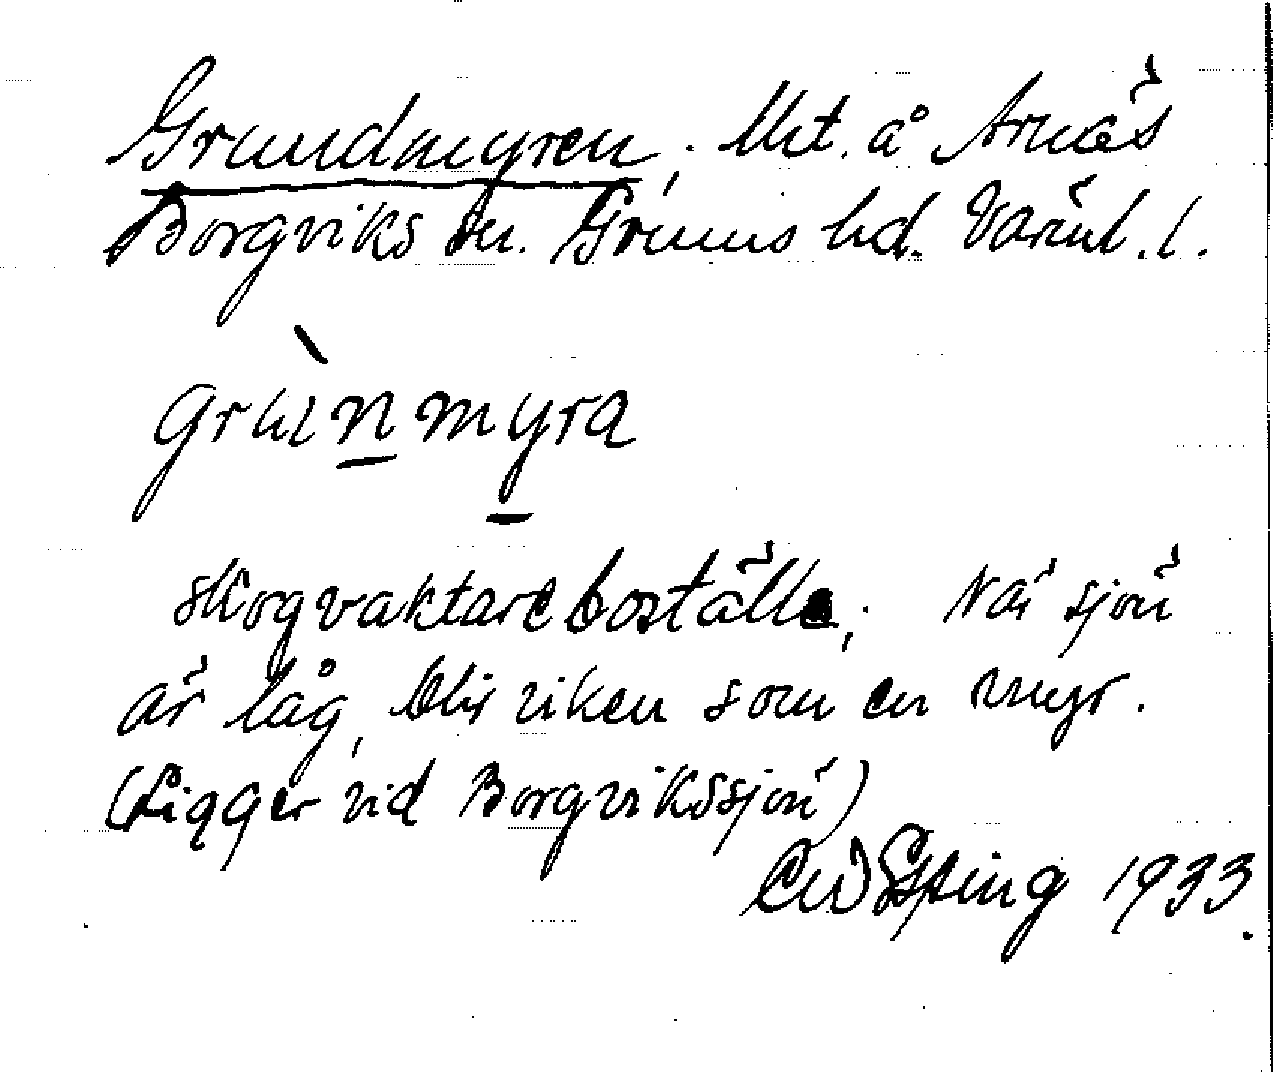 Grundmyren, Uht. å Arnäs
Borgviks sn. Grums hd. Värml. l.
grunmyra
skogvaktareboställe; När sjön
är låg, blir viken som en myr.
(Ligger vid Borgvikssjön)
Esping 1933.